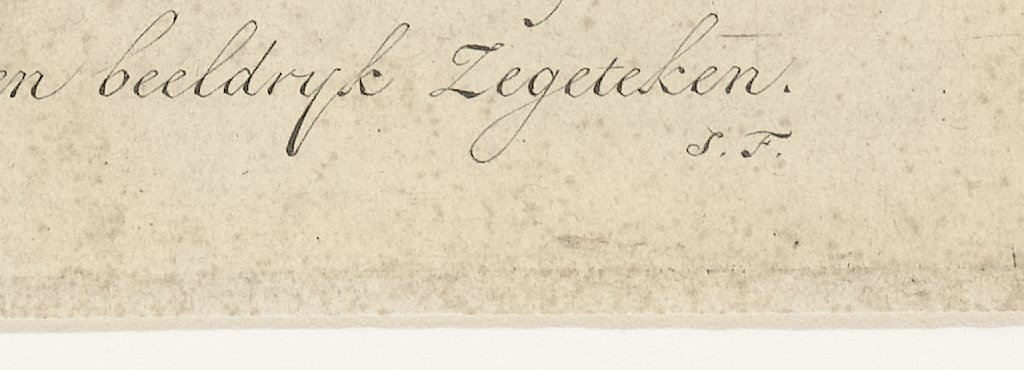 en beeldryk Zegeteken.
S. F.